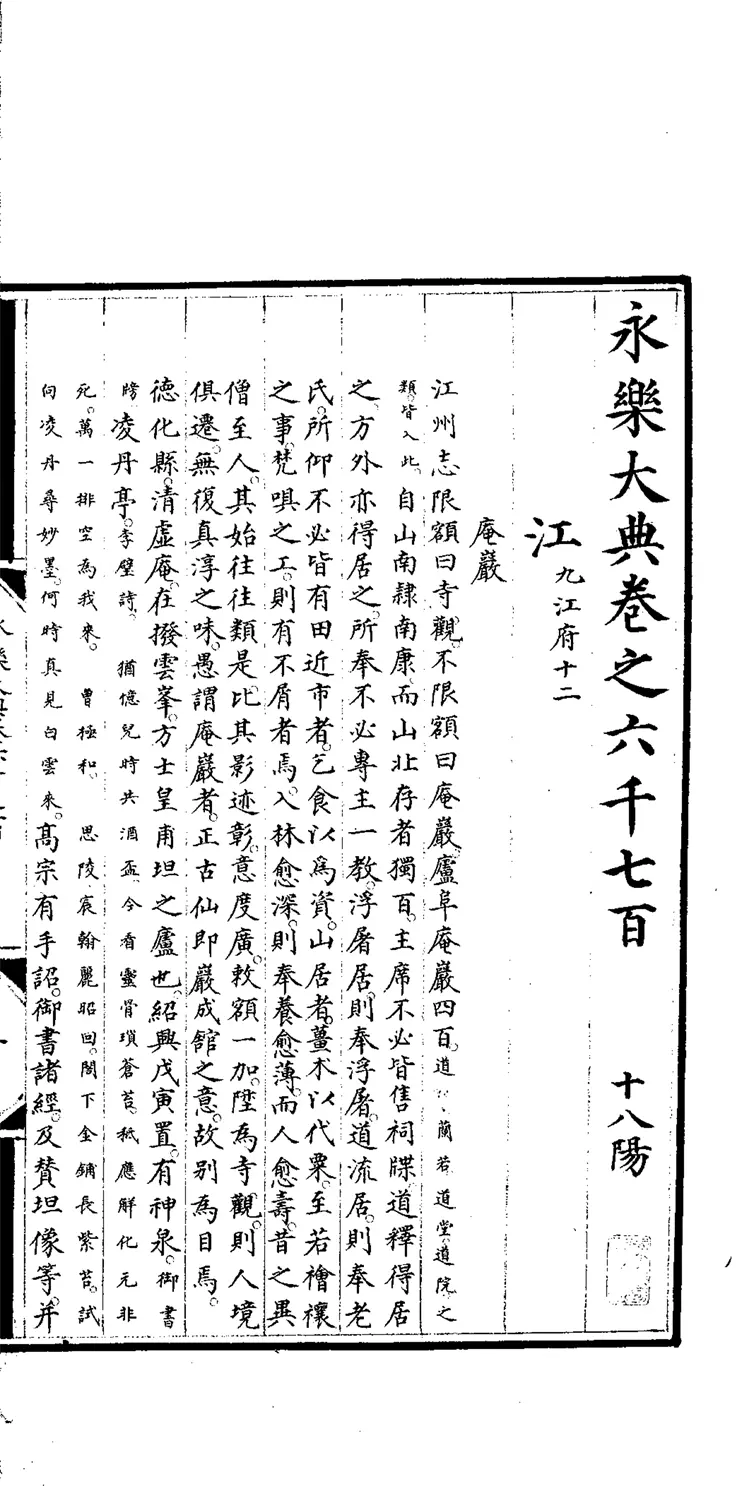 永樂大典卷之六千七百 十八陽
江 九江府十二
庵巖
江州志限額曰寺觀。不限額曰庵巖。廬阜庵巖四百。道 蘭若道堂道院之
類。皆入此。自山南隸南康。而山北存者獨百。主席不必皆售祠牒。道釋得居
之。方外亦得居之。所奉不必專主一教。浮屠居。則奉浮屠。道流居。則奉老
氏。所仰不必皆有田近市者。乞食以爲資。山居者。薑木以代粟。至若禬禳
之事。梵唄之工。則有不屑者焉。入林愈深。則奉養愈薄。而人愈壽。昔之異
僧至人。其始往往類是。比其影迹彰。意度廣。敕額一加。陞為寺觀。則人境
俱遷。無復真淳之味。愚謂庵巖者。正古仙即巖成館之意。故别為目焉。
德化縣。清虛庵。在撥雲峯。方士皇甫坦之廬也。紹興戊寅置。有神泉。御書
牓凌丹亭。李壁詩。猶億兒時共酒盃。今看靈骨瑣蒼苔。秪應解化元非
死。萬一排空為我來。曾極和。思陵宸翰麗昭回。閣下金鋪長紫苔。試
向凌丹尋妙墨。何時真見白雲來。高宗有手詔。御書諸經。及賛坦像等。并